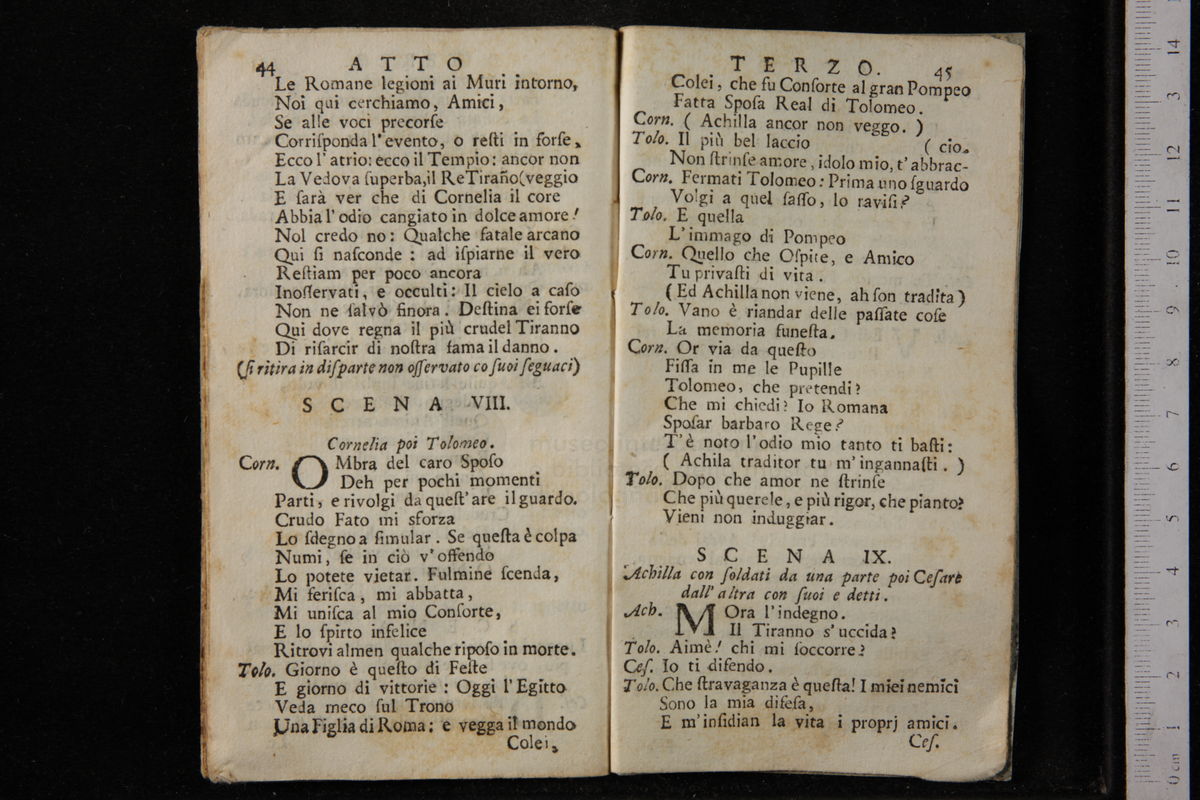 44 ATTO
Le Romane legioni ai Muri intorno,
Noi qui cerchiamo, Amici,
Se alle voci precorſe
Corriſponda l'evento, o reſti in forſe,
Ecco l'atrio: ecco il Tempio: ancor non
La Vedova ſuperba, il Re Tirãno (veggio
E ſarà ver che di Cornelia il core
Abbia l'odio cangiato in dolce amore!
Nol credo no: Qualche fatale arcano
Qui ſi naſconde: ad iſpiarne il vero
Reſtiam per poco ancora
Inoſſervati, e occulti: Il cielo a caſo
Non ne ſalvò finora. Deſtina ei forſe
Qui dove regna il più crudel Tiranno
Di riſarcir di noſtra fama il danno.
(ſi ritira in diſparte non oſſervato co ſuoi ſeguaci)
SCENA VIII.
Cornelia poi Tolomeo.
Corn. OMbra del caro Spoſo
Deh per pochi momenti
Parti, e rivolgi da queſt'are il guardo.
Crudo Fato mi sforza
Lo ſdegno a ſimular. Se queſta è colpa
Numi, ſe in ciò v'offendo
Lo potete vietar. Fulmine ſcenda,
Mi feriſca, mi abbatta,
Mi uniſca al mio Conſorte,
E lo ſpirto infelice
Ritrovi almen qualche ripoſo in morte.
Tolo. Giorno è queſto di Feſte
E giorno di vittorie: Oggi l'Egitto
Veda meco ſul Trono
Una Figlia di Roma; e vegga il mondo
Colei,
TERZO. 45
Colei, che fu Conſorte al gran Pompeo
Fatta Spoſa Real di Tolomeo.
Corn. (Achilla ancor non veggo.)
Tolo. Il più bel laccio (cio.
Non ſtrinſe amore, idolo mio, t'abbrac-
Corn. Fermati Tolomeo: Prima uno ſguardo
Volgi a quel ſaſſo, lo raviſi?
Tolo. E quella
L'immago di Pompeo
Corn. Quello che Oſpite, e Amico
Tu privaſti di vita.
(Ed Achilla non viene, ah ſon tradita)
Tolo. Vano è riandar delle paſſate coſe
La memoria funeſta.
Corn. Or via da queſto
Fiſſa in me le Pupille
Tolomeo, che pretendi?
Che mi chiedi? Io Romana
Spoſar barbaro Rege?
T'è noto l'odio mio tanto ti baſti:
(Achila traditor tu m'ingannaſti.)
Tolo. Dopo che amor ne ſtrinſe
Che più querele, e più rigor, che pianto?
Vieni non induggiar.
SCENA IX.
Achilla con ſoldati da una parte poi Ceſare
dall'altra con ſuoi e detti.
Ach. MOra l'indegno.
Il Tiranno s'uccida?
Tolo. Aimè! chi mi ſoccorre?
Ceſ. Io ti difendo.
Tolo. Che ſtravaganza è queſta! I miei nemici
Sono la mia difeſa,
E m'inſidian la vita i proprj amici.
Ceſ.